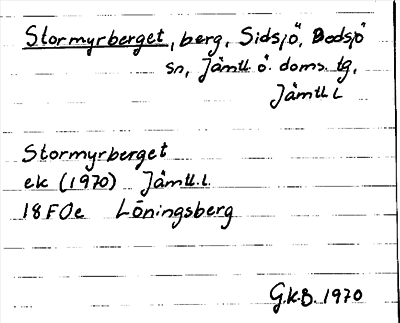 Stormyrberget, berg, Sidsjö, Bodsjö
sn, Jämtl. ö. doms. tg,
Jämtl. L
Stormyrberget
ek (1970) Jämtl. l.
18FOe Löningsberg
G.K.B. 1970